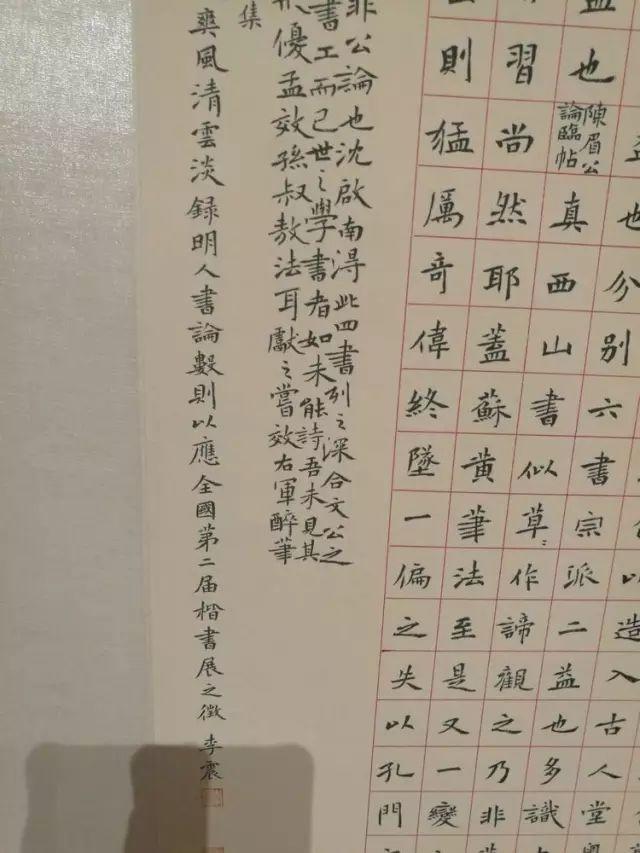 以造入古人堂
也分别六書宗派二益也多識
益也陳眉公論臨帖真西山書似草〻作諦觀之乃非
習尚然耶蓋蘇黄筆法至是又一變
則猛厲奇偉終墜一偏之失以孔門
非公論也沈啟南得此四書列之深合文公之
書工而已世之學書者如未能詩吾未見其
優孟效孫叔敖法耳獻之嘗效右軍醉筆
集
爽風清雲淡録明人書論數則以應全國第二届楷書展之徵 李震